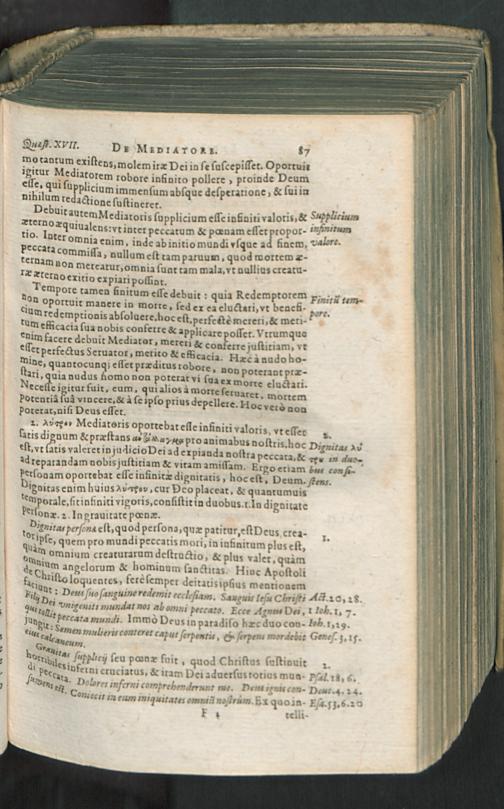 Quæst. XVII. DE MEDIATORE. 87
mo tantum existens, molem iræ Dei in se suscepisset. Oportuit
igitur Mediatorem robore infinito pollere, proinde Deum
esse, qui supplicium immensum absque desperatione, & sui in
nihilum redactione sustineret.
Debuit autem Mediatoris supplicium esse infiniti valoris, & Supplicium
æterno æquiualens: vt inter peccatum & pœnam esset propor- infinitum
tio. Inter omnia enim, inde ab initio mundi vsque ad finem, valore.
peccata commissa, nullum est tam paruum, quod mortem æ-
ternam non mereatur, omnia sunt tam mala, vt nullius creatu-
ræ æterno exitio expiari possint.
Tempore tamen finitum esse debuit: quia Redemptorem Finitū tem-
non oportuit manere in morte, sed ex ea eluctari, vt benefi- pore.
cium redemptionis absoluere, hoc est, perfectè mereri, & meri-
tum efficacia sua nobis conferre & applicare posset. Vtrumque
enim facere debuit Mediator, mereri & conferre justitiam, vt
esset perfectus Seruator, merito & efficacia. Hæc à nudo ho-
mine, quantocunqȝ esset præditus robore, non poterant præ-
stari, quia nudus homo non poterat vi sua ex morte eluctari.
Necesse igitur fuit, eum, qui alios à morte seruaret, mortem
potentiâ suâ vincere, & à se ipso prius depellere. Hoc verò non
poterat, nisi Deus esset.
2. λύτρον Mediatoris oportebat esse infiniti valoris, vt esset 2.
satis dignum & præstans pro animabus nostris, hoc Dignitas λύ
est, vt satis valeret in judicio Dei ad expianda nostra peccata, & τρου in duo-
ad reparandam nobis justitiam & vitam amissam. Ergo etiam bus consi-
personam oportebat esse infinitæ dignitatis, hoc est, Deum. stens.
Dignitas enim huius λύτρου, cur Deo placeat, & quantumuis
temporale, sit infiniti vigoris, consistit in duobus. 1. In dignitate
personæ. 2. In grauitate pœnæ.
Dignitas personæ est, quod persona, quæ patitur, est Deus crea- 1.
tor ipse, quem pro mundi peccatis mori, in infinitum plus est,
quàm omnium creaturarum destructio, & plus valet, quàm
omnium angelorum & hominum sanctitas. Hinc Apostoli
de Christo loquentes, ferè semper deitatis ipsius mentionem
faciunt: Deus suo sanguine redemit ecclesiam. Sanguis Iesu Christi Act. 20, 28.
Filij Dei vnigeniti mundat nos ab omni peccato. Ecce Agnus Dei, 1 Ioh. 1, 7.
qui tollit peccata mundi. Immò Deus in paradiso hæc duo con- Ioh. 1, 29.
jungit: Semen mulieris conteret caput serpentis, & serpens mordebit Genes. 3, 15.
eius calcaneum.
Grauitas supplicij seu pœnæ fuit, quod Christus sustinuit 2.
horribiles inferni cruciatus, & iram Dei aduersus totius mun- Psal. 18, 6.
di peccata. Dolores inferni comprehenderunt me. Deus ignis con- Deut. 4. 24.
sumens est. Coniecit in eum iniquitates omniū nostrûm. Ex quo in- Esa. 53, 6. 10
F 4 telli-